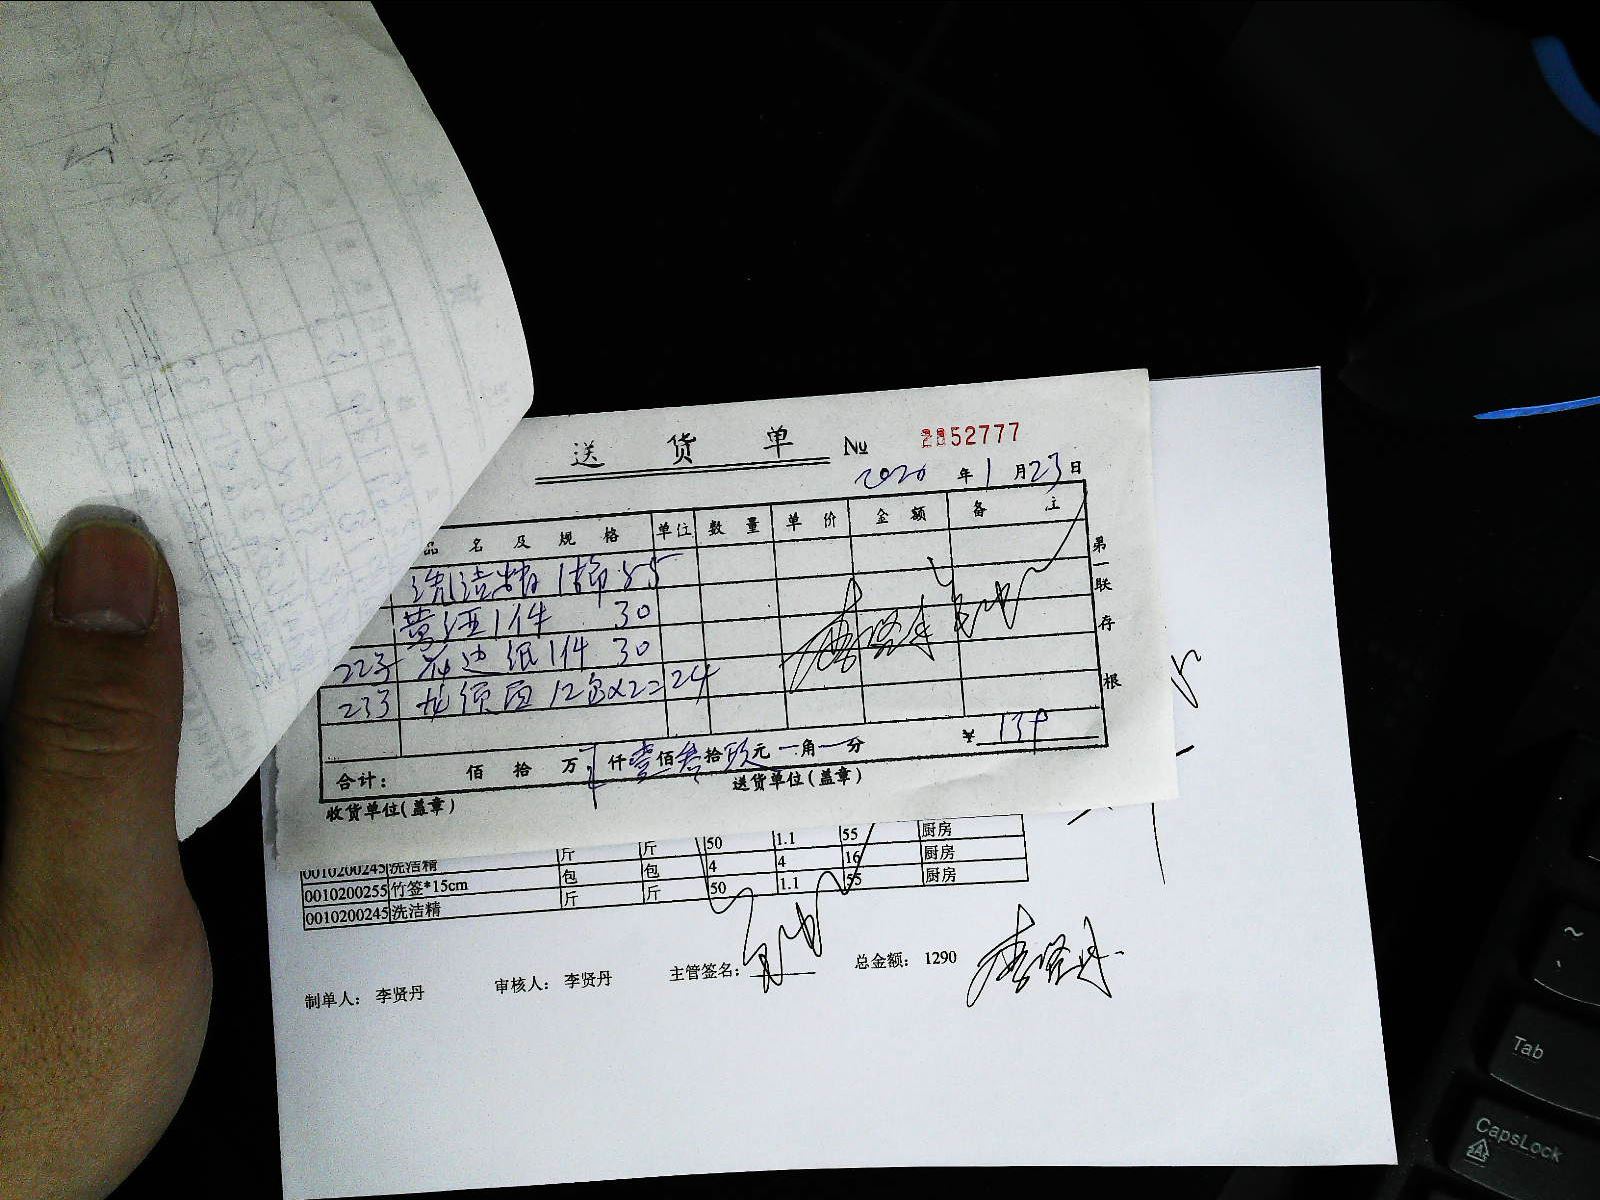 送 货 单 № 2852777
2020 年 1 月 23 日
品 名 及 规 格 单位 数 量 单 价 金 额 备 注
洗洁精 1桶 55
黄酒 1件 30
223 花边纸 1件 30
233 龙须面 12包x2=24
合计： 佰 拾 万 仟 壹 佰 叁 拾 玖 元 一 角 一 分 ¥ 139
收货单位(盖章) 送货单位(盖章)
第一联 存根
斤 斤 50 1.1 55 厨房
0010200245 洗洁精 包 包 4 4 16 厨房
0010200255 竹签*15cm 斤 斤 50 1.1 55 厨房
0010200245 洗洁精
制单人： 李贤丹 审核人： 李贤丹 主管签名： 总金额： 1290
~
Tab
CapsLock
A